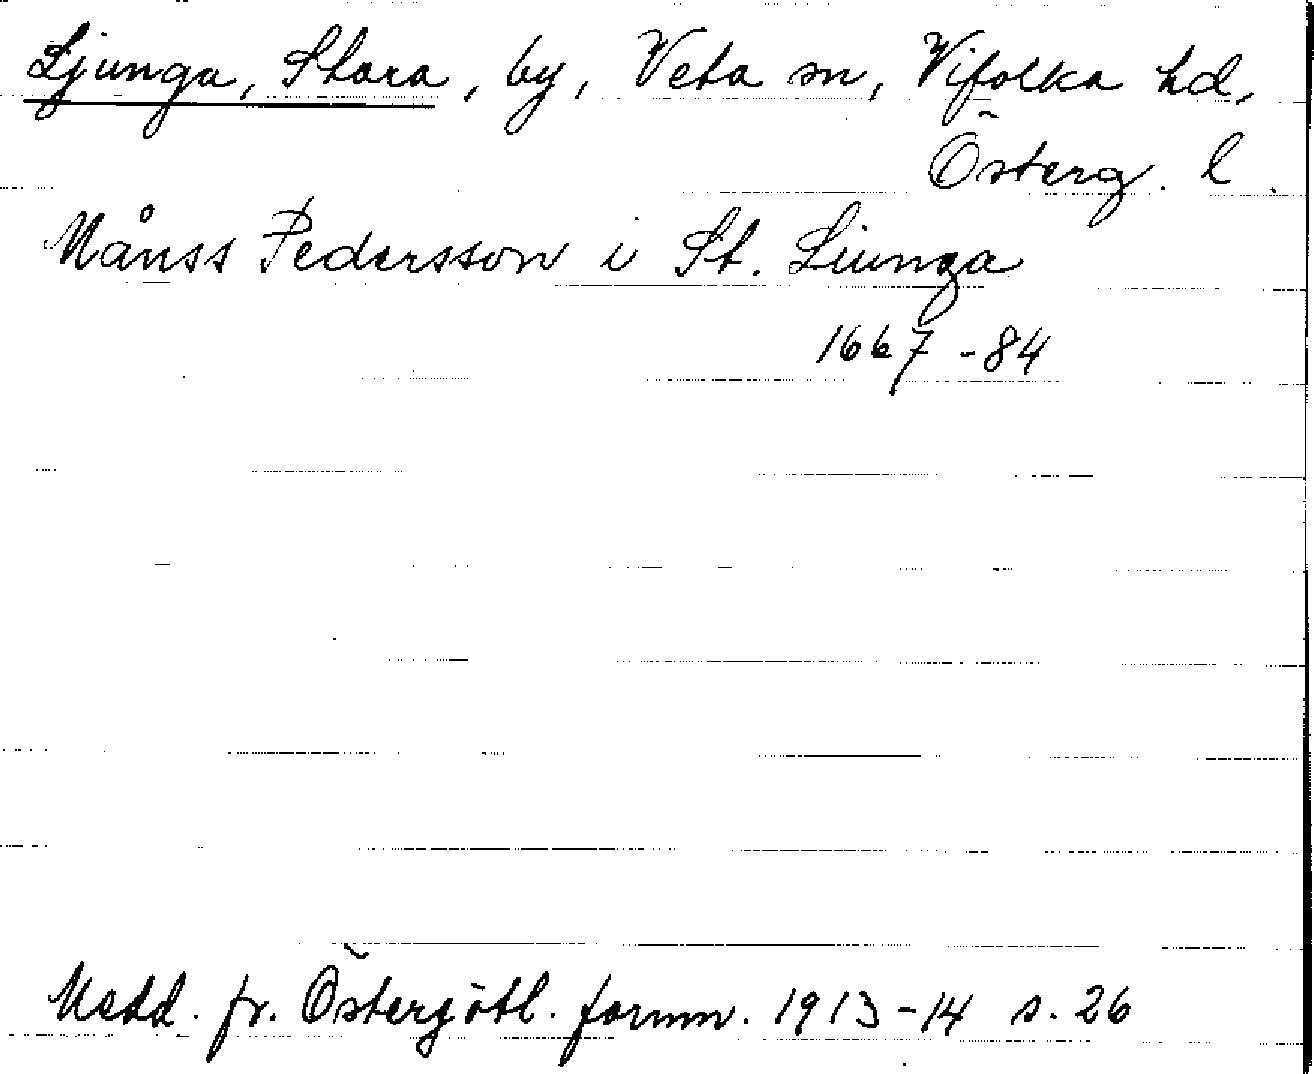 Ljunga, Stora, by, Veta sn, Vifolka hd,
Österg. l.
Månss Pedersson i St. Liunga
1667-84
Medd. fr. Östergötl. fornm. 1913-14 s. 26